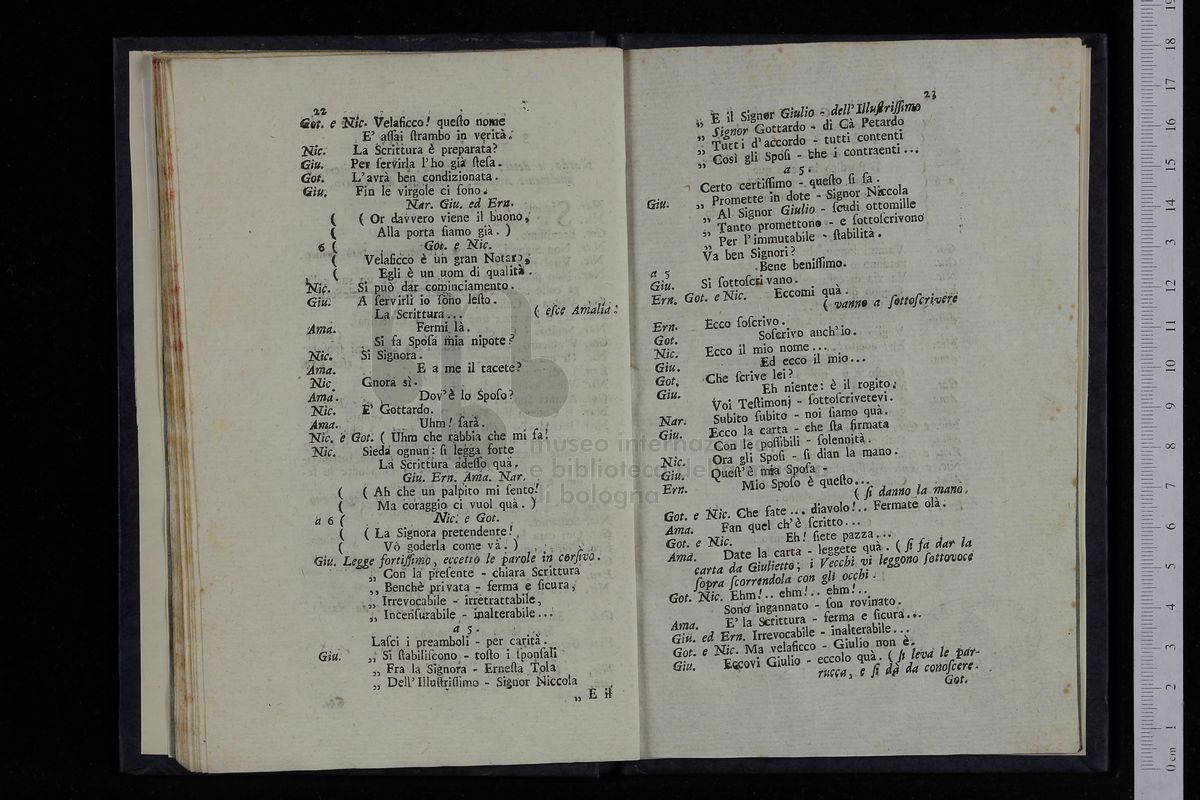 22
Got. e Nic. Velaficco! queſto nome
E' aſſai ſtrambo in verità.
Nic. La Scrittura è preparata?
Giu. Per ſervirla l'ho già ſteſa.
Got. L'avrà ben condizionata.
Giu. Fin le virgole ci ſono.
Nar. Giu. ed Ern.
( ( Or davvero viene il buono,
( Alla porta ſiamo già. )
6 ( Got. e Nic.
( Velaficco è un gran Notaro,
( Egli è un uom di qualità.
Nic. Si può dar cominciamento.
Giu. A ſervirli io ſono leſto.
La Scrittura... ( eſce Amalia:
Ama. Fermi là.
Si fa Spoſa mia nipote?
Nic. Sì Signora.
Ama. E a me il tacete?
Nic Gnora sì.
Ama. Dov'è lo Spoſo?
Nic. E' Gottardo.
Ama. Uhm! ſarà.
Nic. e Got. ( Uhm che rabbia che mi fa!
Nic. Sieda ognun: ſi legga forte
La Scrittura adeſſo quà.
Giu. Ern. Ama. Nar.
( ( Ah che un palpito mi ſento!
( Ma coraggio ci vuol quà. )
a 6 ( Nic. e Got.
( ( La Signora pretendente!
( Vò goderla come và. )
Giu. Legge fortiſſimo, eccetto le parole in corſivo.
„ Con la preſente - chiara Scrittura
„ Benchè privata - ferma e ſicura,
„ Irrevocabile - irretrattabile,
„ Incenſurabile - inalterabile...
a 5.
Laſci i preamboli - per carità.
Giu. „ Si ſtabiliſcono - toſto i ſponſali
„ Fra la Signora - Erneſta Tola
„ Dell'Illuſtriſſimo - Signor Niccola
„ E il
23
„ E il Signor Giulio - dell'Illuſtriſſimo
„ Signor Gottardo - di Cà Petardo
„ Tutti d'accordo - tutti contenti
„ Così gli Spoſi - che i contraenti...
a 5.
Certo certiſſimo - queſto ſi ſa.
Giu. „ Promette in dote - Signor Niccola
„ Al Signor Giulio - ſcudi ottomille
„ Tanto promettono - e ſottoſcrivono
„ Per l'immutabile - ſtabilità.
Va ben Signori?
a 5 Bene beniſſimo.
Giu. Si ſottoſcrivano.
Ern. Got. e Nic. Eccomi quà.
( vanno a ſottoſcrivere
Ern. Ecco ſoſcrivo.
Got. Soſcrivo anch'io.
Nic. Ecco il mio nome...
Giu. Ed ecco il mio...
Got. Che ſcrive lei?
Giu. Eh niente: è il rogito.
Voi Teſtimonj - ſottoſcrivetevi.
Nar. Subito ſubito - noi ſiamo quà.
Giu. Ecco la carta - che ſta firmata
Con le poſſibili - ſolennità.
Nic. Ora gli Spoſi - ſi dian la mano.
Giu. Queſt'è mia Spoſa -
Ern. Mio Spoſo è queſto...
( ſi danno la mano.
Got. e Nic. Che fate... diavolo!.. Fermate olà.
Ama. Fan quel ch'è ſcritto...
Got. e Nic. Eh! ſiete pazza...
Ama. Date la carta - leggete quà. ( ſi fa dar la
carta da Giulietto; i Vecchi vi leggono ſottovoce
ſopra ſcorrendola con gli occhi.
Got. Nic. Ehm!.. ehm!.. ehm!..
Sono ingannato - ſon rovinato.
Ama. E' la Scrittura - ferma e ſicura...
Giu. ed Ern. Irrevocabile - inalterabile...
Got. e Nic. Ma velaficco - Giulio non è.
Giu. Eccovi Giulio - eccolo quà. ( ſi leva le par-
rucca, e ſi dà da conoſcere.
Got.
museo internaz
e biblioteca del
di bologna
0 cm 1 2 3 4 5 6 7 8 9 10 11 12 13 14 15 16 17 18 19